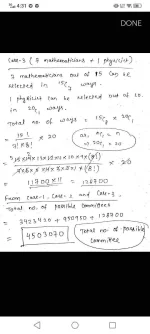 4:31
DONE
Case-3 (7 mathematicians + 1 physicist)
7 mathematicians out of 15 can be
selected in 15C7 ways.
1 physicist can be selected out of 20
in 20C1 ways.
Total no. of ways = 15C7 × 20C1
= 15! / 7! 8! × 20
as, nC1 = n
⇒ 20C1 = 20
× 20
= 11700 × 11 = 128700
From Case-1, Case-2 and Case-3,
Total no. of possible committees
= 3423420 + 950950 + 128700
= 4503070
Total no. of possible
committee